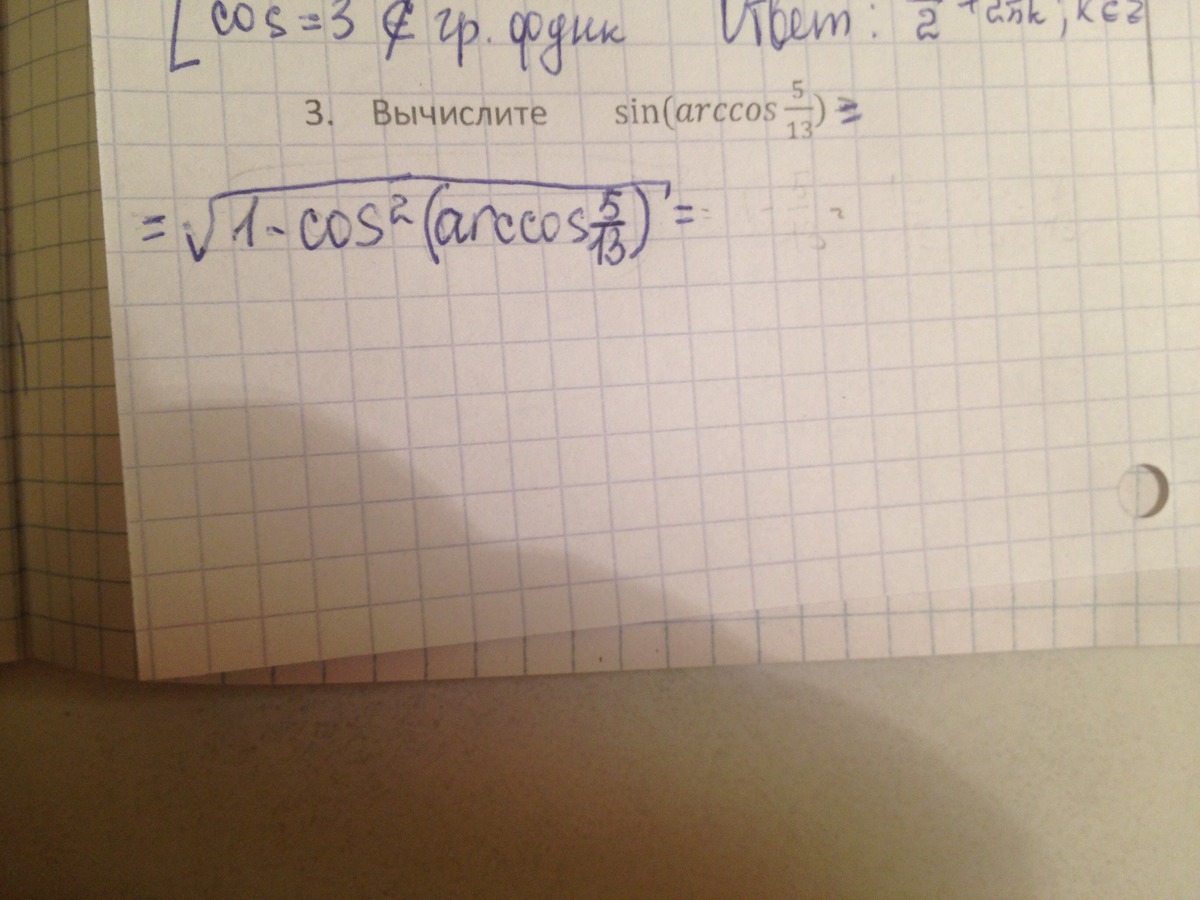 [cos = 3 ∉ гр. ф Ответ: π/2 + 2πk; k ∈ z
3. Вычислите sin(arccos 5/13) =
= √(1 - cos²(arccos 5/13)) =